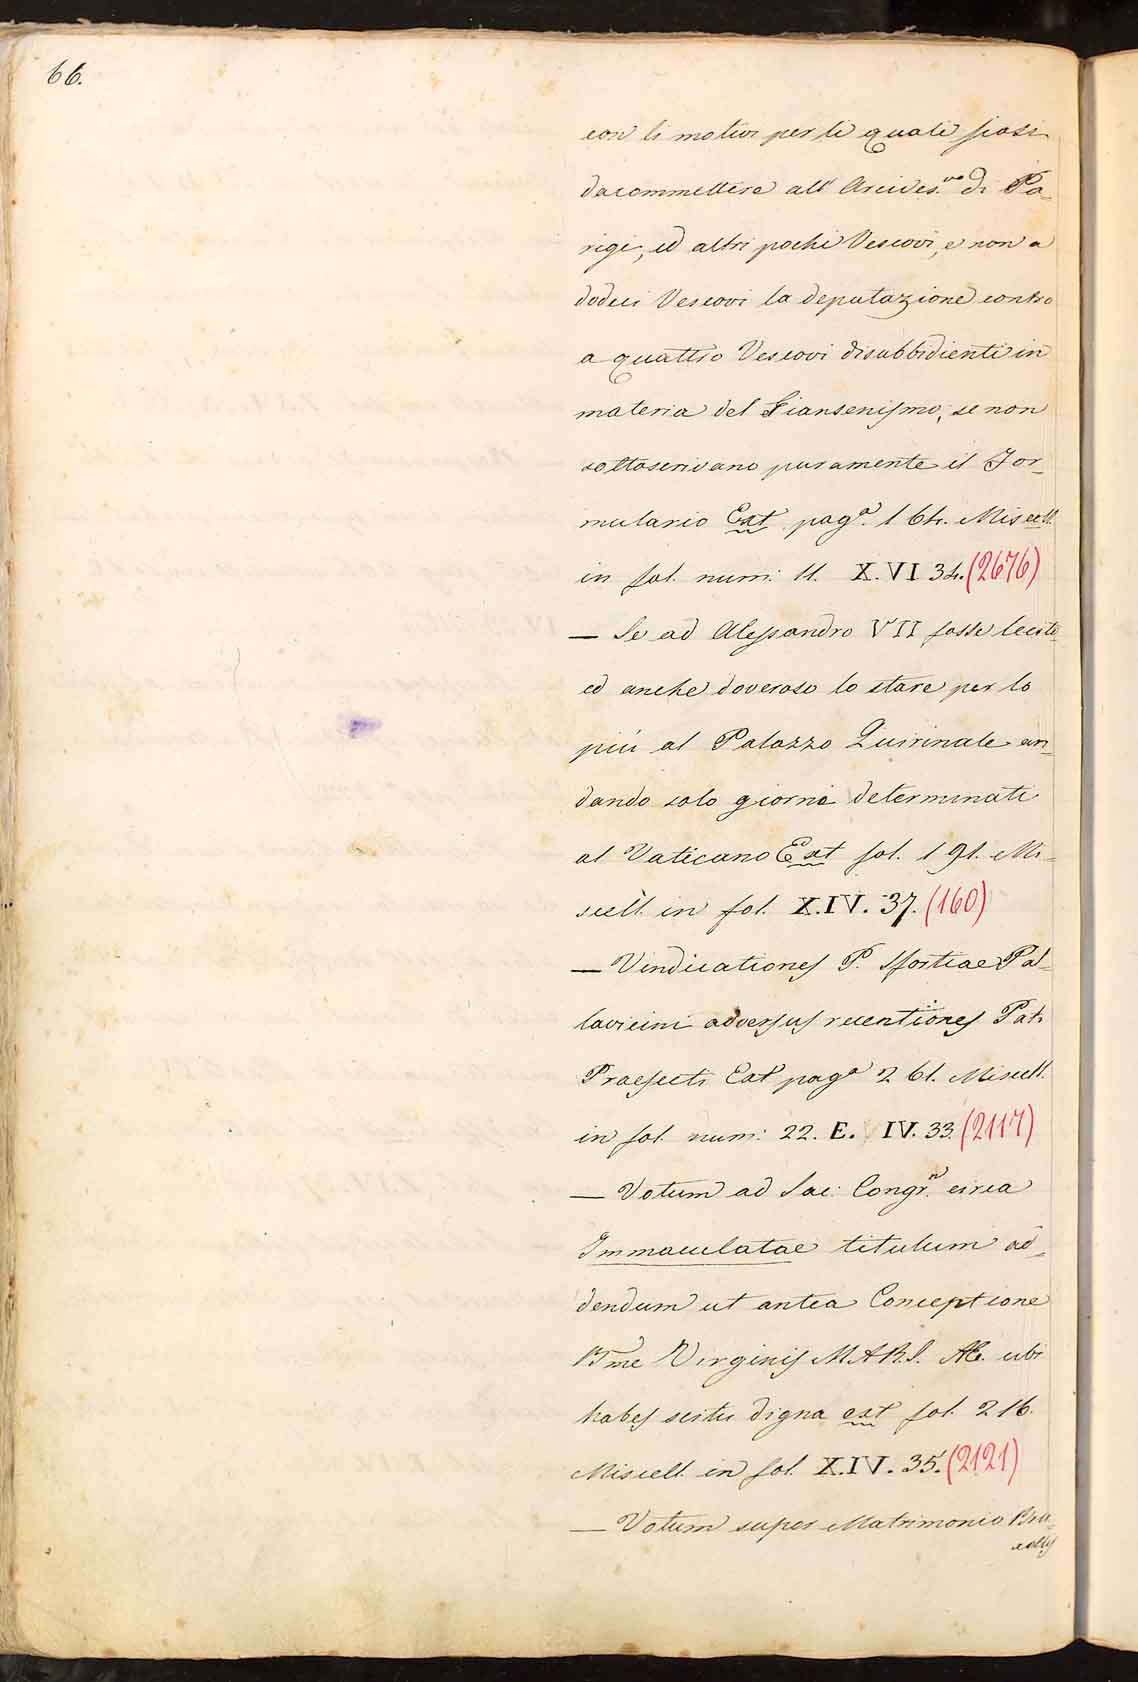 66.
con li motivi per li quali siasi
da commettere all' Arcives.vo di Pa-
rigi, ed altri pochi Vescovi, e non a
dodici Vescovi la deputazione contro
a quattro Vescovi disubbidienti in
materia del Giansenismo, se non
sottoscrivano puramente il For-
mulario Ext pag.a 164. Miscell.
in fol. num: 11. X.VI 34. (2676)
— Se ad Alessandro VII fosse lecito
ed anche doveroso lo stare per lo
più al Palazzo Quirinale an-
dando solo giorni determinati
al Vaticano Ext fol. 191. Mi-
scell. in fol. X.IV. 37. (160)
— Vindicationes P. Sfortiae Pal-
lavicini adversus recentiones Pat.
Praefecti Ext pag.a 261. Miscell.
in fol. num: 22. E. IV. 33. (2117)
— Votum ad Sac: Congr.n circa
Immaculatae titulum ad-
dendum ut antea Conceptione
Bme Virginis M.A.R.S. AC. ubi
habes scitu digna ext fol. 216.
Miscell. in fol. X.IV. 35. (2121)
— Votum super Matrimonio Bru-
xellis